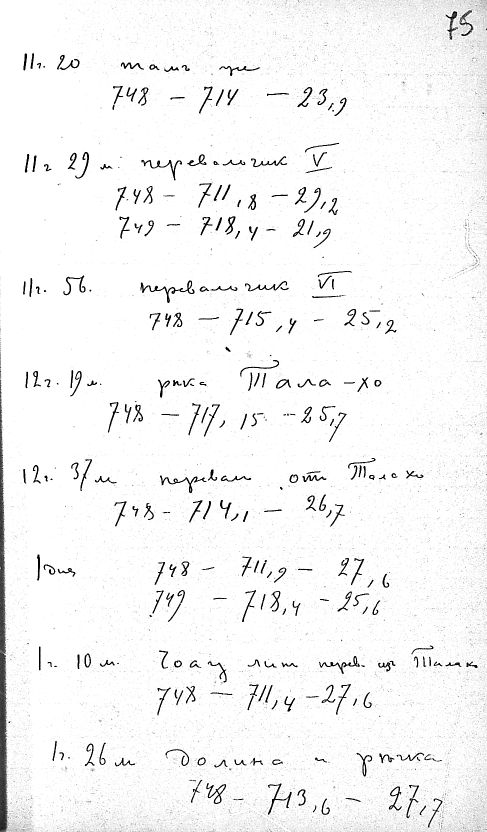 75
11г. 20 там же
748 – 714 – 23,9
11г 29 м. перевальчик V
748 – 711,8 – 29,2
749 – 718,4 – 21,9
11г. 56. перевальчик VI
748 – 715,4 – 25,2
12г. 19 м. рѣка Тала-хо
748 – 717,15 – 25,7
12г. 37 м перевал от Тала хо
748 – 714,1 – 26,7
1 дня 748 – 711,9 – 27,6
749 – 718,4 – 25,6
1г. 10 м. перев.
748 – 711,4 – 27,6
1г. 26 м долина и рѣчка
748 – 713,6 – 27,7